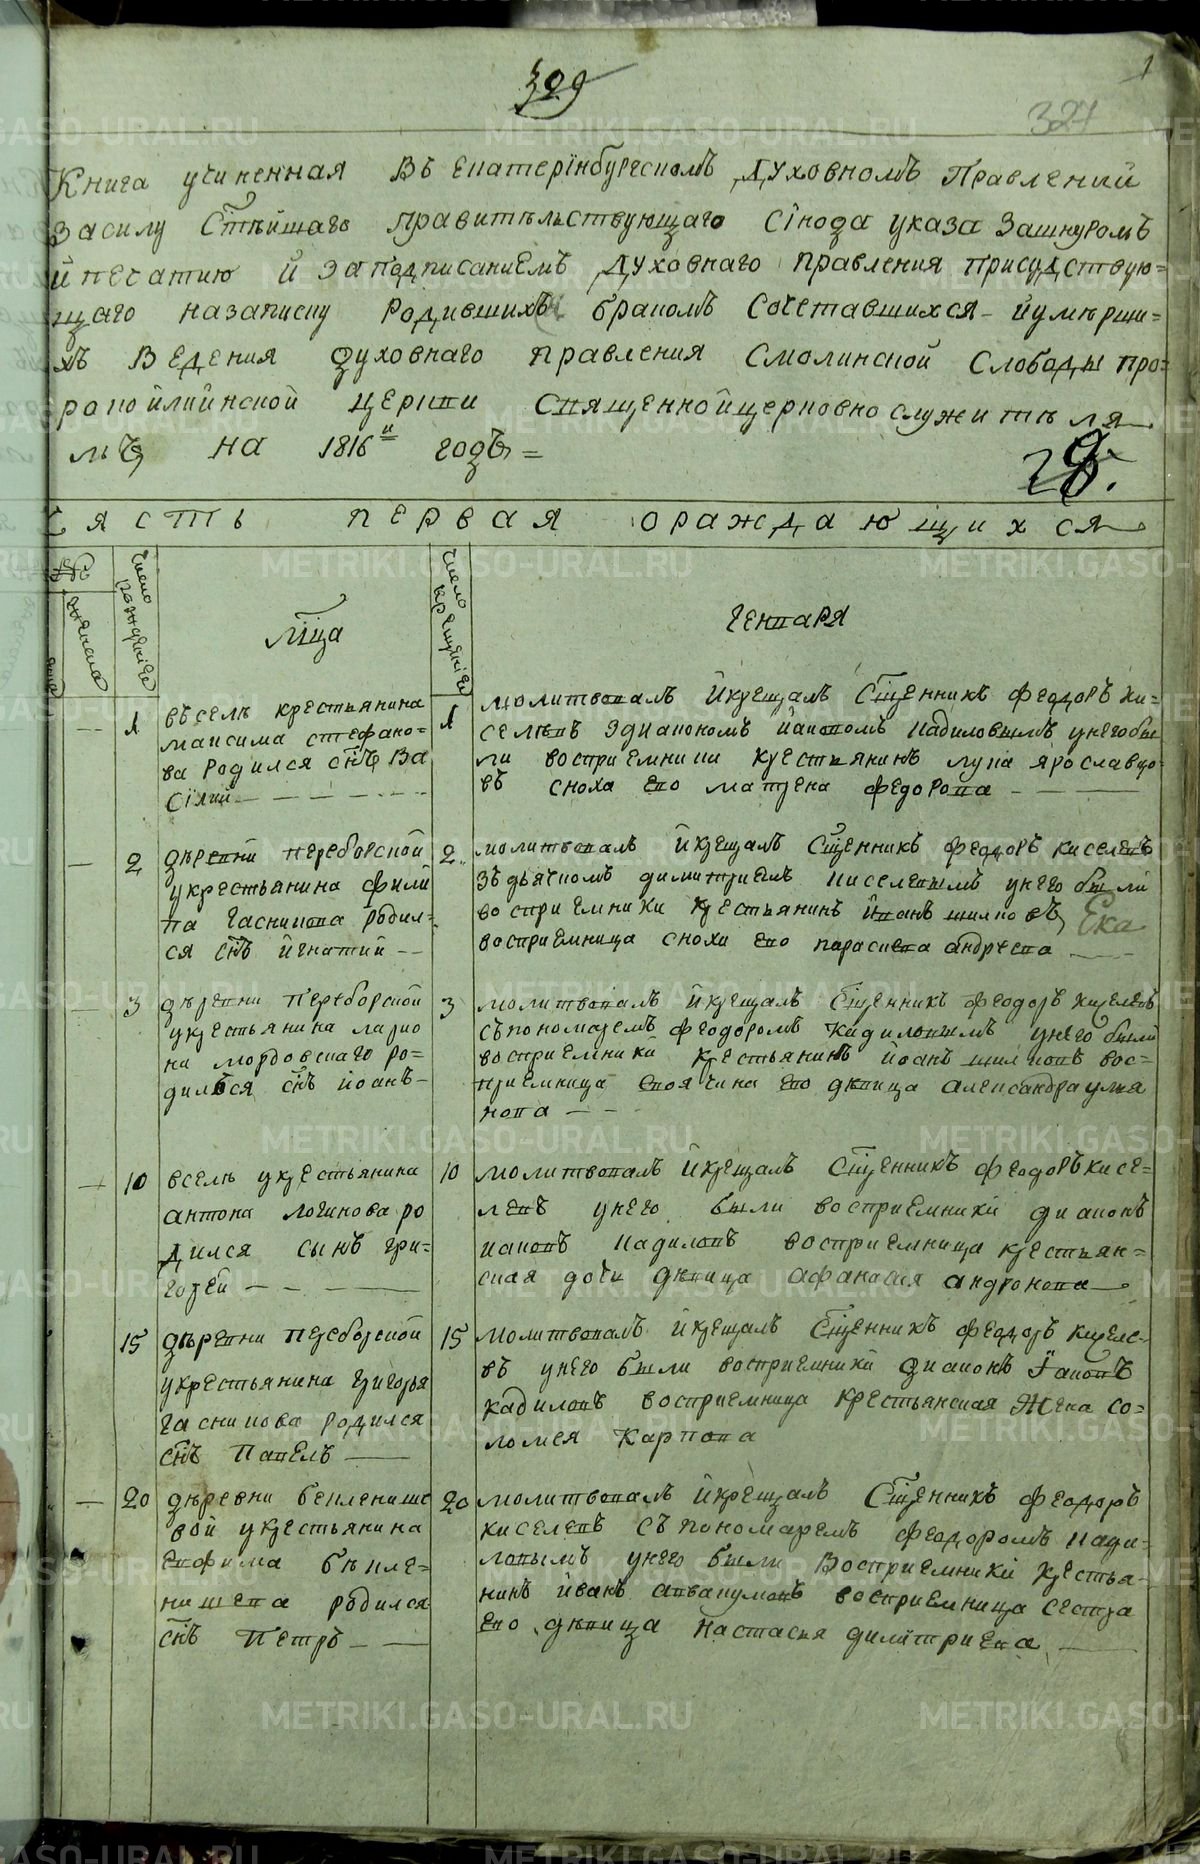 329
1
327
Книга учиненная Въ Екатерiнбургскомъ Духовномъ Правленiй
засилу Стѣйшаго правительствующаго Сiнода указа Зашнуромъ
й печатию й Заподписаниемъ Духовнаго правления присудствую=
щаго назаписку Родившихъ бракомъ сочетавшихся йумерши=
хъ Ведения духовнаго правления Смолинской Слободы про=
рокойлиинской церкви священнойцерковнослужителя
мъ на 1816й годъ =
Часть первая ораждающихся
число рожденiе
число крещенiе
женска
Лица
Генваря
1
въсель крестьянина
максима стефано=
ва Родился снъ Ва
сiлий
1
молитвовалъ йкрещалъ Сщенникъ феодоръ ки=
селевъ здиакономъ иаковомъ кадиловымъ унегобы
ли восприемники крестьянинъ лука ярославцо
въ сноха ево матрена федорова
2
деревни переборской
укрестьянина фили
па гаскинова родил=
ся снъ йгнатий
2
молитвовалъ йкрещалъ Сщенникъ феодоръ киселевъ
здьячкомъ димитриемъ киселевымъ унего были
восприемники крестьянинъ йванъ шилковъ Ека
восприемница сноха ево параскева андреева
3
деревни переборской
укрестьянина ларио
на мордовскаго ро=
дился снъ иоанъ
3
молитвовалъ йкрещалъ Сщенникъ феодоръ киселевъ
съпономаремъ феодоромъ Кадиловымъ унего были
восприемники крестьянинъ иоанъ шилковъ вос=
приемница своячина ево девица александра улья
нова
10
вселе укрестьянина
антона логинова ро
дился сынъ гри=
горей
10
молитвовалъ йкрещалъ Сщенникъ феодоръ кисе=
левъ унего были восприемники диаконъ
иаковъ кадиловъ восприемница крестьян=
ская дочи девица афанасия андронова
15
деревни переборской
укрестьянина григорья
гаскинова родился
снъ Павелъ
15
молитвовалъ йкрещалъ Сщенникъ феодоръ киселе=
въ унего были восприемники диаконъ Iаковъ
кадиловъ восприемница крестьянская Жена со=
ломея Карпова
20
деревни бекленише
вой укрестьянина
ефима бекле=
нишева родился
снъ Петръ
20
молитвовалъ йкрещалъ Сщенникъ феодоръ
киселевъ съпономаремъ феодоромъ кади=
ловымъ унего были Восприемники крестья=
нинъ йванъ аввакумовъ восприемница сестра
ево девица настасья димитриева
METRIKI.GASO-URAL.RU